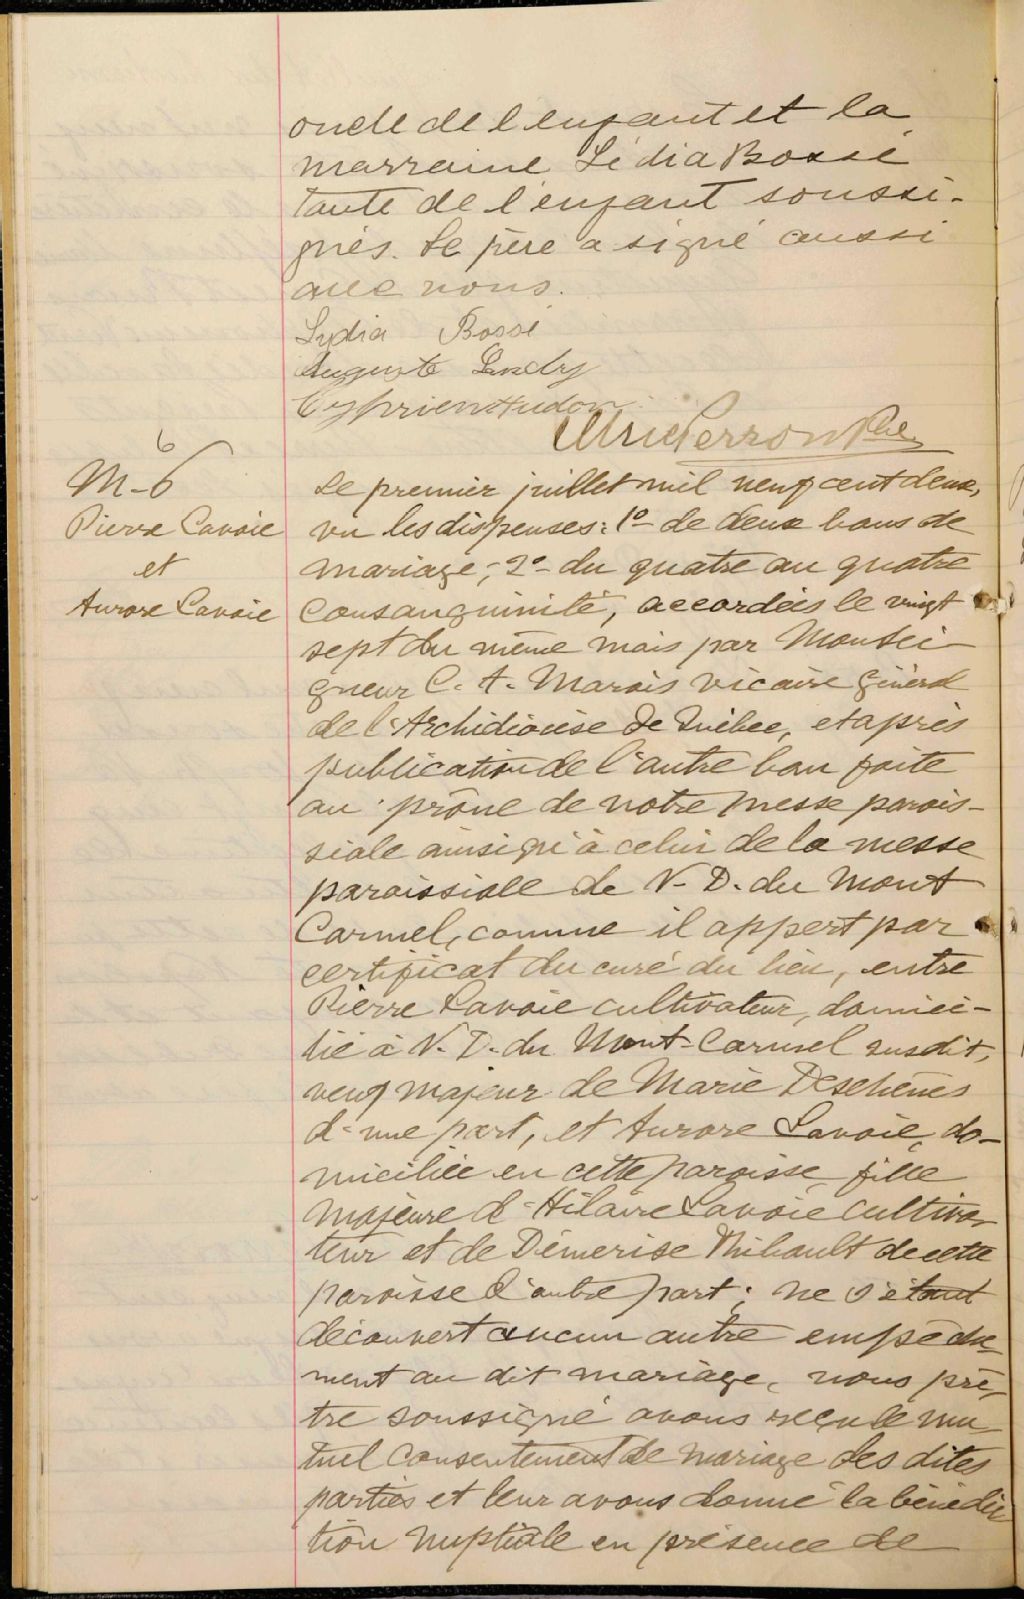 oncle de l'enfant et la
marraine Lédia Bossé
tante de l'enfant soussi-
gnés. Le père a signé aussi
avec nous.
Lydia Bossé
Auguste Landry
Cyprien Hudon
Perron Ptre
6
M-6
Pierre Lavoie
et
Aurore Lavoie
Le premier juillet mil neuf cent deux,
vu les dispenses: 1º- de deux bans de
mariage; 2º- du quatre au quatre
consanguinité, accordées le vingt
sept du même mois par Monsei-
gneur C. A. Marois vicaire général
de l'Archidiocèse de Québec, et après
publication de l'autre ban faite
au prône de notre messe parois-
siale ainsi qu'à celui de la messe
paroissiale de N. D. du Mont
Carmel, comme il appert par
certificat du curé du lieu, entre
Pierre Lavoie cultivateur, domici-
lié à N. D. du Mont-Carmel susdit,
veuf majeur de Marie Deschênes
d'une part, et Aurore Lavoie, do-
miciliée en cette paroisse, fille
majeure d'Hilaire Lavoie cultiva-
teur et de Démerise Thibault de cette
paroisse d'autre part; ne s'étant
découvert aucun autre empêche
ment au dit mariage, nous prê-
tre soussigné avons reçu le mu-
tuel consentement de mariage des dites
parties et leur avons donné la bénédic
tion nuptiale en présence de